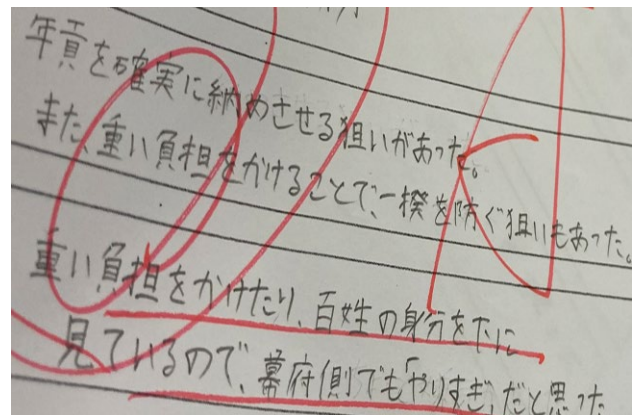 年貢を確実に納めさせる狙いがあった。
また、重い負担をかけることで、一揆を防ぐ狙いもあった。
重い負担をかけたり、百姓の身分を下に
見ているので、幕府側でも「やりすぎ」だと思った